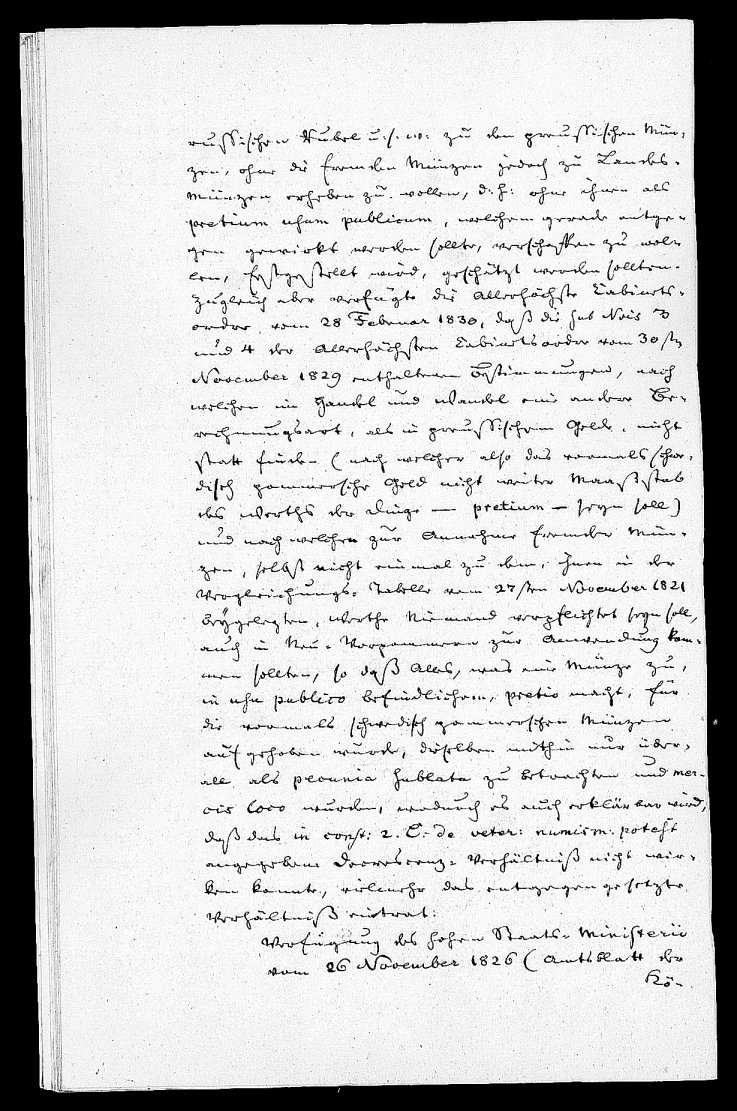 russischen Rubel u. s. w. zu den preussischen Mün-
zen, ohne die fremden Münzen jedoch zu Landes-
Münzen erheben zu wollen, d. h: ohne ihnen als
pretium usum publicum, welchem gerade entge-
gen gewirkt werden sollte, verschaffen zu wol-
len, festgestellt wird, geschätzt werden sollten.
Zugleich aber verfügte die Allerhöchste Cabinets-
order vom 28 Februar 1830, daß die sub Nois 3
und 4 der Allerhöchsten Cabinetsorder vom 30sten
November 1829 enthaltenen Bestimmungen, nach
welchen im Handel und Wandel eine andere Be-
rechnungsart, als in preussischem Gelde, nicht
statt finden (nach welcher also das vormals schwe-
disch pommersche Geld nicht weiter Maaßstab
des Werths der Dinge — pretium — seyn soll)
und nach welchen zur Annahme fremder Mün-
zen, selbst nicht einmal zu dem, ihnen in der
Vergleichungs-Tabelle vom 27sten November 1821
beygelegten, Werthe Niemand verpflichtet seyn soll,
auch in Neu-Vorpommern zur Anwendung kom-
men sollten, so daß Alles, was eine Münze zu,
in usu publico befindlichem, pretio macht, für
die vormals schwedisch pommerschen Münzen
aufgehoben wurde, dieselben mithin nur über-
all als pecunia sublata zu betrachten und mer-
cis loco wurden, wodurch es auch erklärbar wird,
daß das in const: 2. C. de veter: numism: potest
angegebene Decrescenz-Verhältniß nicht wir-
ken konnte, vielmehr das entgegengesetzte
Verhältniß eintrat:
Verfügung des hohen Staats-Ministerii
vom 26 November 1826 (Amtsblatt der
Kö-